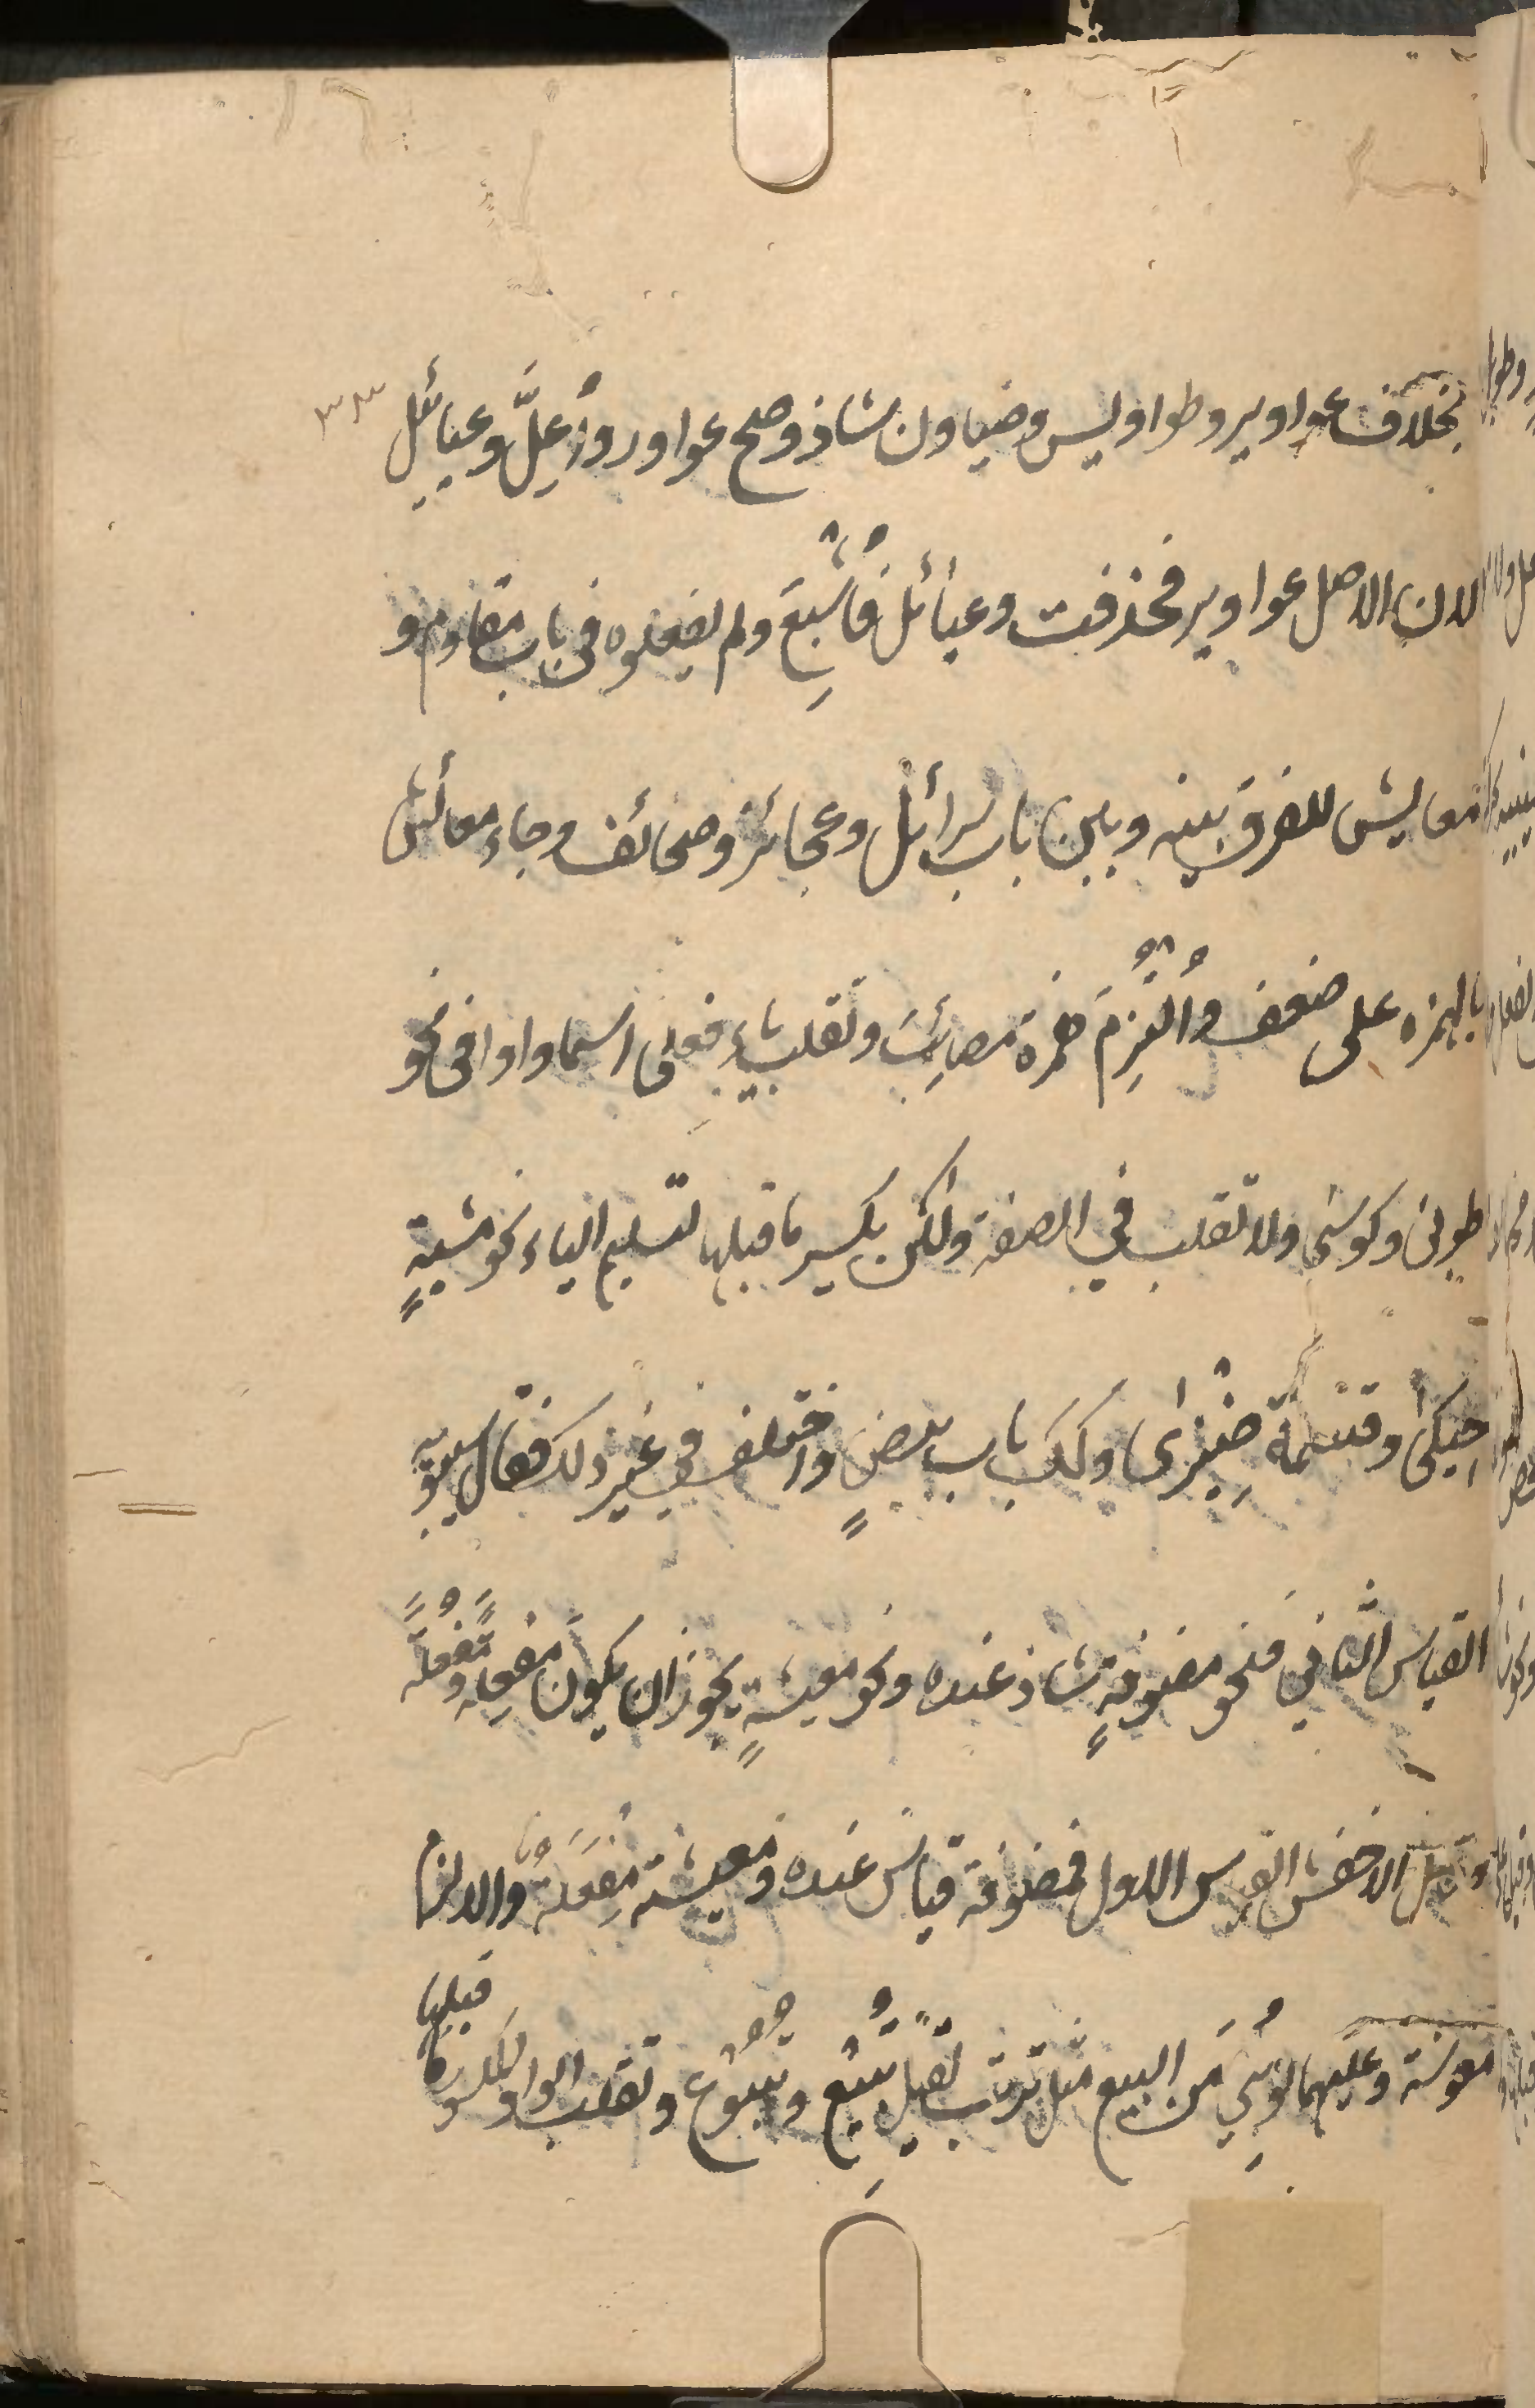 بخلاف عواوير وطواويس وضياون شاذ وصح عواور وأُعِلَّ وعيائيل
لان الاصل عواوير فحذفت وعيائل فأُشْبِعَ ولم يفعلوه فى باب مقاوم و
معايش للفرق بينه وبين باب رسائل وعجائز وصحائف وجاء معائش
بالهمزه على ضعف وأُلْتُزِمَ همزة مصائب وتقلب ياء فعلى اسما واوا فى نحو
طوبى وكوسى ولا تقلب فى الصفة ولكن يكسر ما قبلها لتسلم الياء نحو مشيةٍ
حيكى وقسمة ضِيْزى وكك باب بيضٍ واختلف فى غير ذلك فقال سيبويه
القياس الثانى فنحو مضوفةٍ شاذ عنده ونحو معيشةٍ يجوز ان يكون مفعِلة ومَفْعُلة
وقال الاخفش القياس الاول فمضوفة قياس عنده ومعيشة مفعِلة والا لزم
معوشة وعليهما لو بُنِيَ من البيع مثل ترتب لقيل تُبِيْع وتُبُوْع وتقلب الواو المكسورة
قبلها